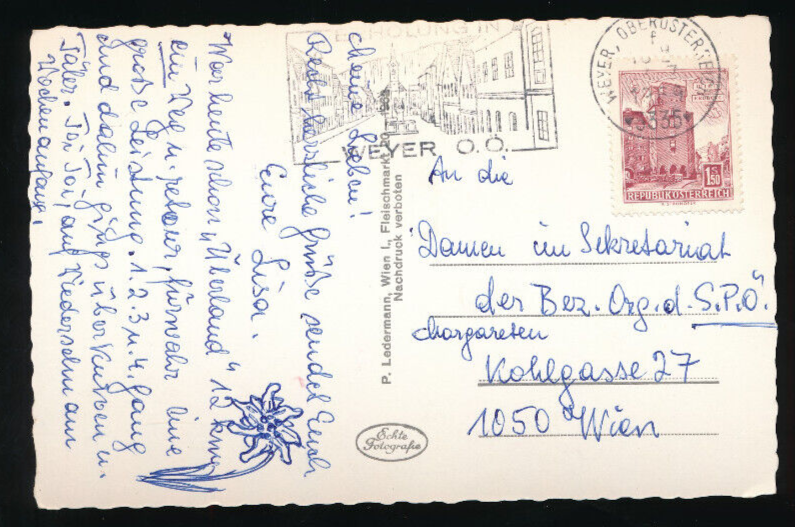 Meine Lieben!
Recht herzliche Grüße sendet Euch
Eure Lisa.
War heute schon „Überland" 12 km
ein Weg u. retour, fürwahr eine
große Leistung. 1. 2. 3. u. 4. Gang
und dahin ging's über Kurven u.
Täler. Toi Toi, auf Wiedersehn am
Wochenanfang.
ERHOLUNG IN
WEYER O.Ö.
WEYER, OBERÖSTERREICH
3335
REPUBLIK ÖSTERREICH
S 1.50
P. Ledermann, Wien I., Fleischmarkt 20
Nachdruck verboten
Echte
Fotografie
An die
Damen im Sekretariat
der Bez. Org. d. S.P.Ö.
Margareten
Kohlgasse 27
1050 Wien